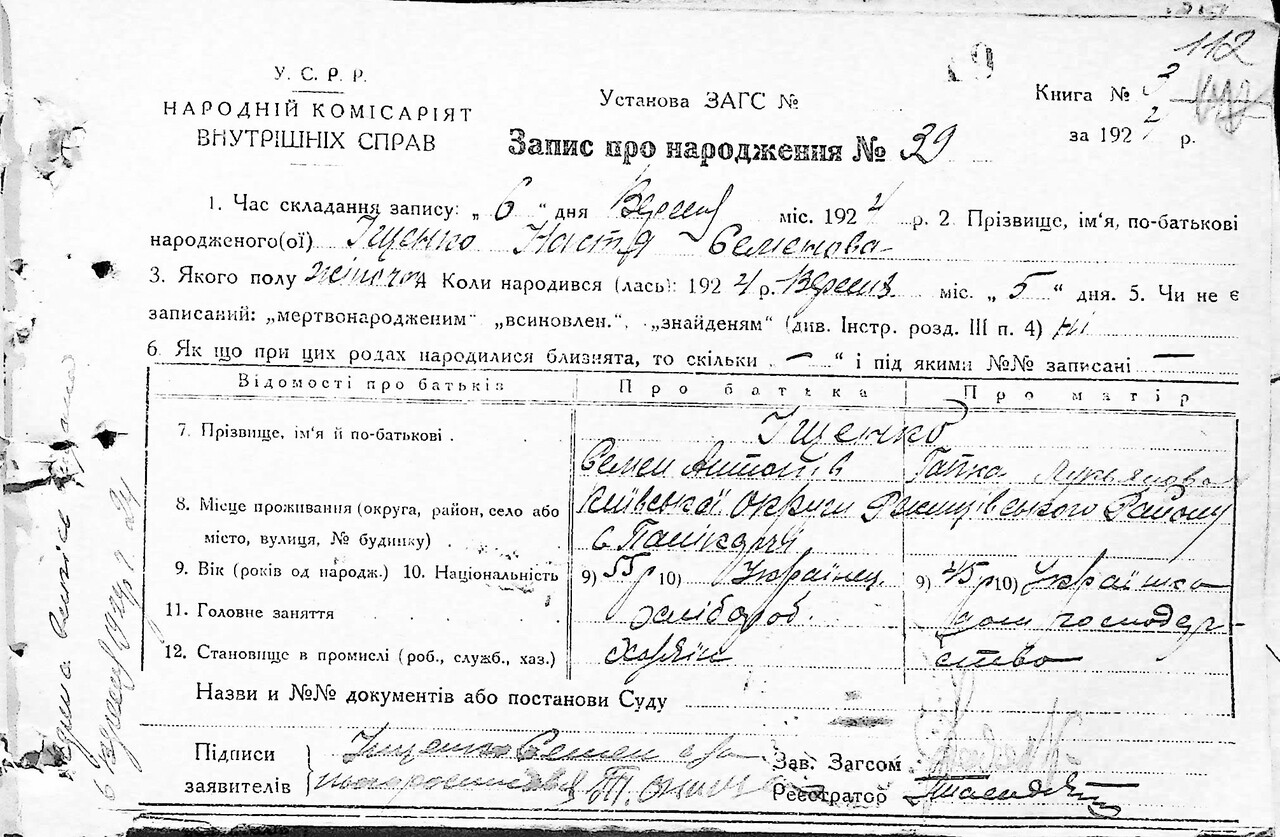 112
У. С. Р. Р.
НАРОДНІЙ КОМІСАРІЯТ
ВНУТРІШНІХ СПРАВ
Установа ЗАГС №
Книга № 3
за 1924 р.
Запис про народження № 39
1. Час складання запису: „ 6 “ дня Вересня міс. 1924 р. 2. Прізвище, ім‘я, по-батькові
народженого(ої) Іщенко Настя Семенова
3. Якого полу жіноча Коли народився (лась): 1924 р. Вересня міс. „ 5 “ дня. 5. Чи не є
записаний: „мертвонародженим“ „всиновлен.“, „знайденям“ (див. Інстр. розд. III п. 4) ні
6. Як що при цих родах народилися близнята, то скільки „ — “ і під якими №№ записані —
Відомості про батьків Про батька Про матір
7. Прізвище, ім‘я й по-батькові . Іщенко
Семен Антонів Гапка Лукьянова
8. Місце проживання (округа, район, село або Київської округи Ржищівського Району
місто, вулиця, № будинку) . с
9. Вік (років од народж.) 10. Національність 9) 55 р 10) Українец 9) 45 р 10) Українка
11. Головне заняття хлібороб. дом господар-
12. Становище в промислі (роб., служб., хаз.) хозяїн ство
Назви и №№ документів або постанови Суду
Підписи Іщенко Семен а за
заявителів
Зав. Загсом
Реєстратор